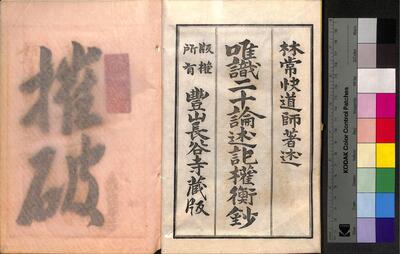 林常快道師著述
唯識二十論述記權衡鈔
版權所有
豐山長谷寺蔵版
摧破
KODAK Color Control Patches